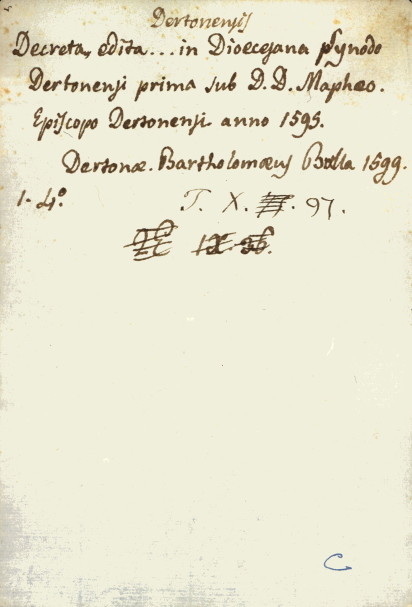 Dertonensis
Decreta, edita... in Dioecesana pſynodo
Dertonensi prima sub D. D. Mapheo.
Epiſcopo Dertonensi anno 1595.
Dertonæ. Bartholomæus Bolla 1599.
1. 4º.
T. X. 97.
C